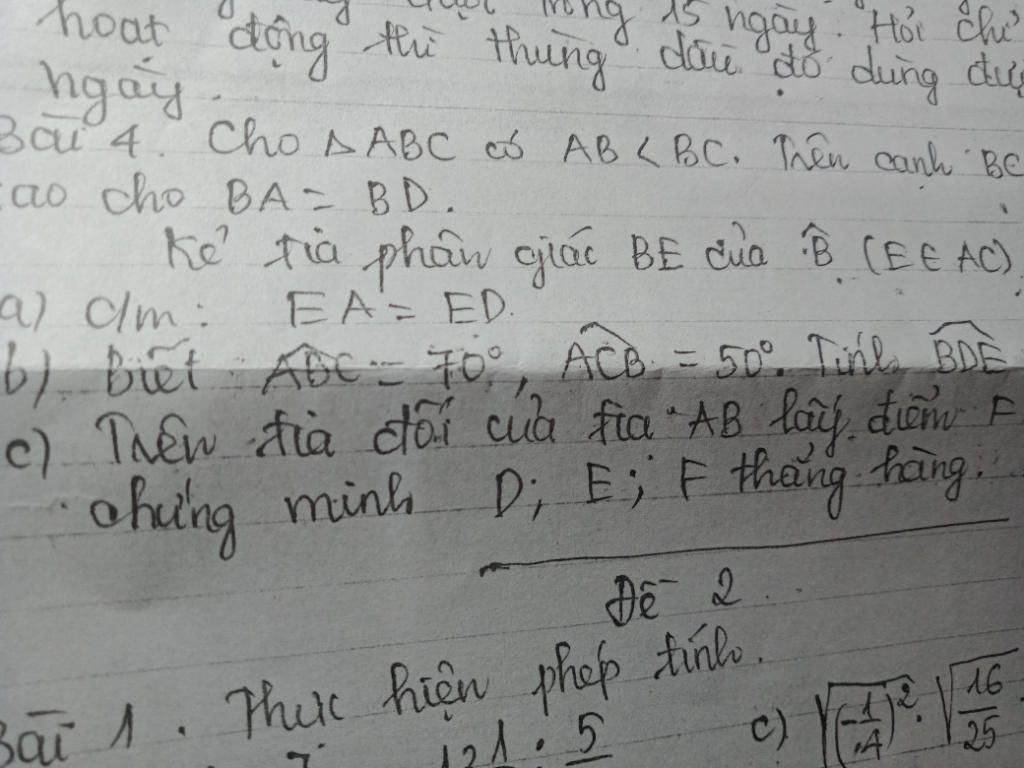 trong 15 ngày. Hỏi chỉ
hoạt động thì thùng dầu đó dùng
ngày.
Bài 4. Cho △ABC có AB < BC. Trên cạnh BC
cho BA = BD.
Kẻ tia phân giác BE của B̂ (E ∈ AC)
a) c/m: EA = ED.
b) Biết \widehat{ABC} = 70°, \widehat{ACB} = 50°. Tính \widehat{BDE}
c) Trên tia đối của tia AB lấy điểm F
chứng minh D; E; F thẳng hàng.
Đề 2
Bài 1. Thực hiện phép tính.
5 c) \sqrt{(\frac{-1}{4})^2} . \sqrt{\frac{16}{25}}